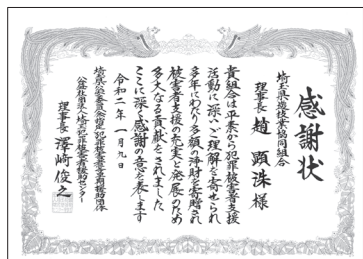 感謝状
埼玉県遊技業協同組合
理事長 趙 顕洙 様
貴組合は平素から犯罪被害者支援
活動に深いご理解を寄せられ
多年にわたり多額の浄財を寄贈され
被害者支援の充実と発展のため
多大なる貢献をされました
ここに深く感謝の意を表します
令和二年一月九日
埼玉県公安委員会指定犯罪被害者等早期援助団体
公益社団法人埼玉犯罪被害者援助センター
理事長 澤﨑俊之